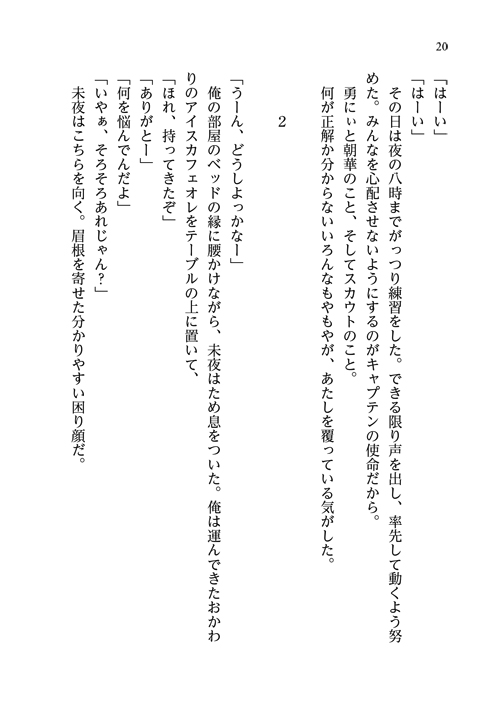 20
「はーい」
「はーい」
その日は夜の八時までがっつり練習をした。できる限り声を出し、率先して動くよう努
めた。みんなを心配させないようにするのがキャプテンの使命だから。
勇にぃと朝華のこと、そしてスカウトのこと。
何が正解か分からないいろんなもやもやが、あたしを覆っている気がした。
2
「うーん、どうしよっかなー」
俺の部屋のベッドの縁に腰かけながら、未夜はため息をついた。俺は運んできたおかわ
りのアイスカフェオレをテーブルの上に置いて、
「ほれ、持ってきたぞ」
「ありがとー」
「何を悩んでんだよ」
「いやぁ、そろそろあれじゃん?」
未夜はこちらを向く。眉根を寄せた分かりやすい困り顔だ。